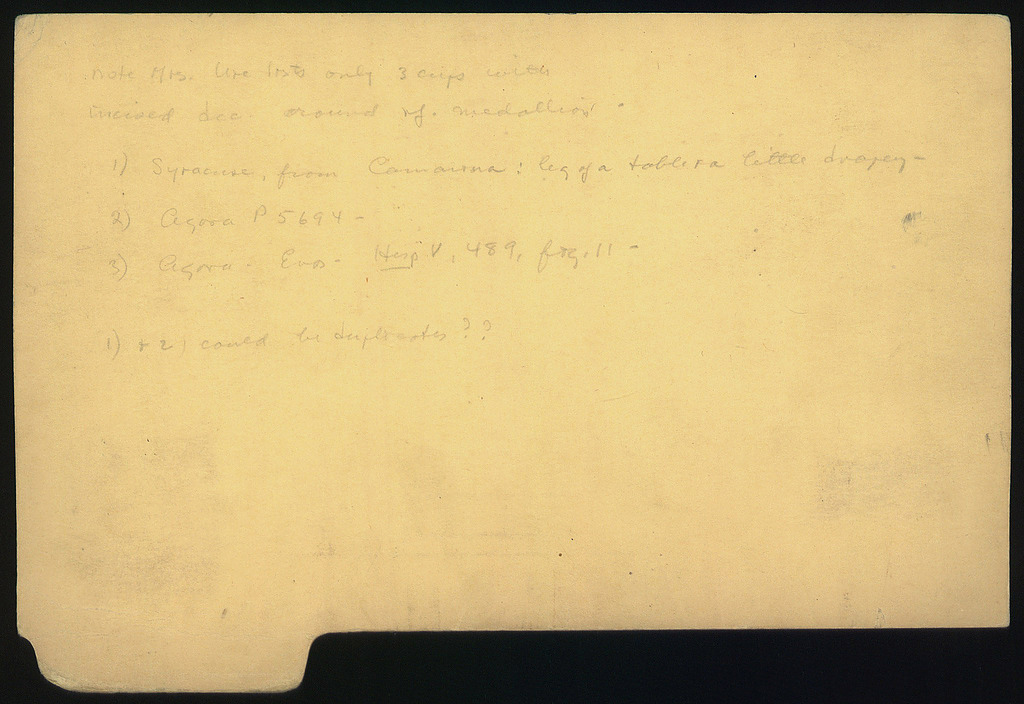 note Mrs. Ure lists only 3 cups with
incised dec. around rf. medallion.
1) Syracuse, from Camarina: leg of a table + a little drapery -
2) Agora P 5694 -
3) Agora - Eros - Hesp V, 489, fig. 11 -
1) + 2) could be duplicates??